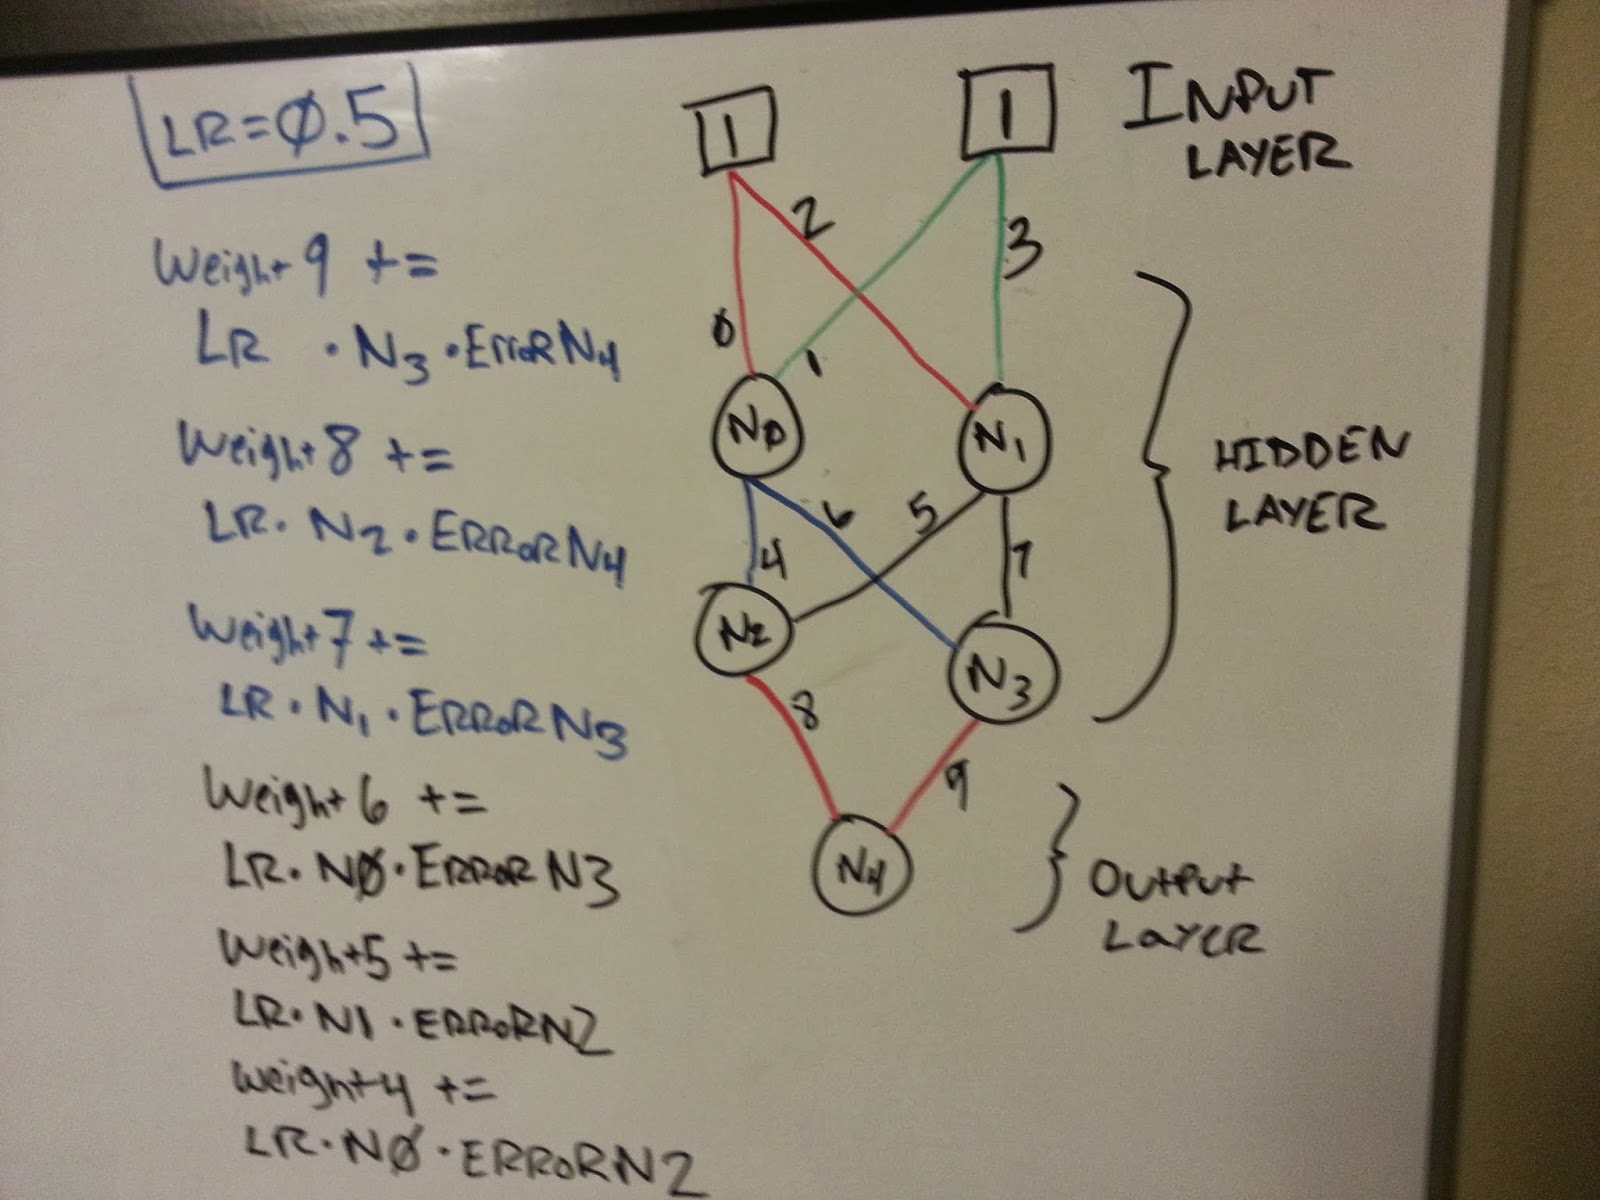 LR=Ø.5
Weight 9 +=
LR · N3 · ERROR N4
Weight 8 +=
LR · N2 · ERROR N4
Weight 7 +=
LR · N1 · ERROR N3
Weight 6 +=
LR · NØ · ERROR N3
Weight 5 +=
LR · N1 · ERROR N2
Weight 4 +=
LR · NØ · ERROR N2
1 1
INPUT
LAYER
2
3
Ø 1
NØ N1
HIDDEN
LAYER
6 5
4 7
N2 N3
8 9
N4
OUTPUT
LAYER